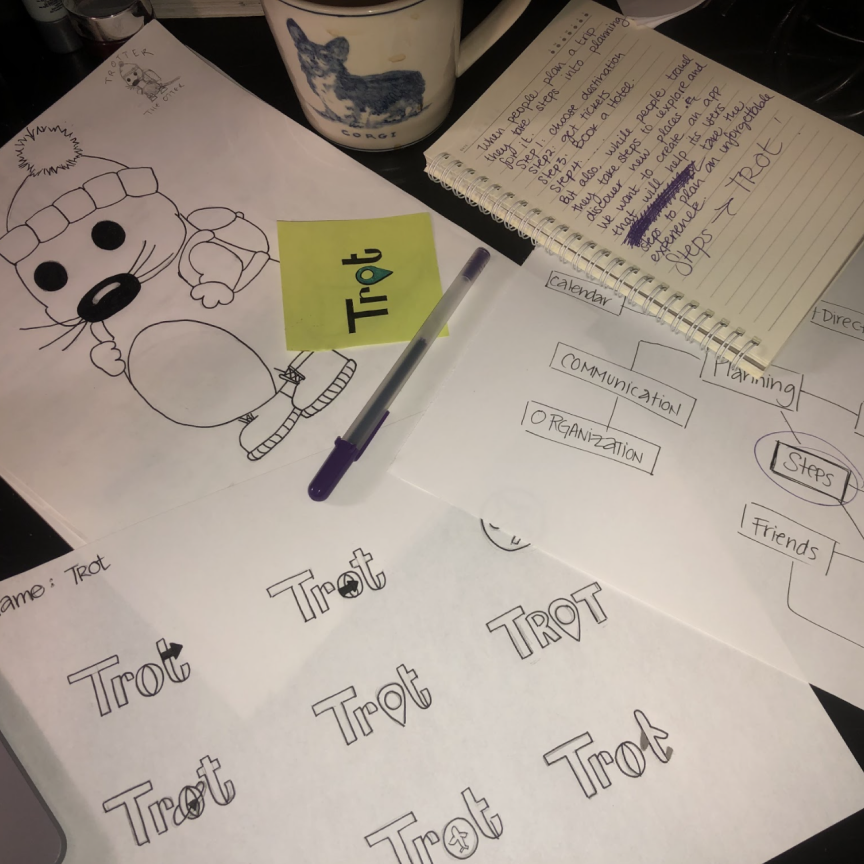 TROTTER
THE OTTER
CORGI
When people plan a trip
they take steps into planning
for it.
Step 1: choose destination
Step 2: get tickets
Step 3: Book a Hotel.
Step 4:
But also, while people travel
they take steps to explore and
discover new places.
We want to create an app
that will help its users
take the
steps to plan an unforgettable
experience.
Steps → TROT!
Trot
calendar
Planning
COMMUNICATION
ORGANIZATION
Steps
Friends
ame: TROT
Trot
TROT
Trot
Trot
Trot
Trot
Trot